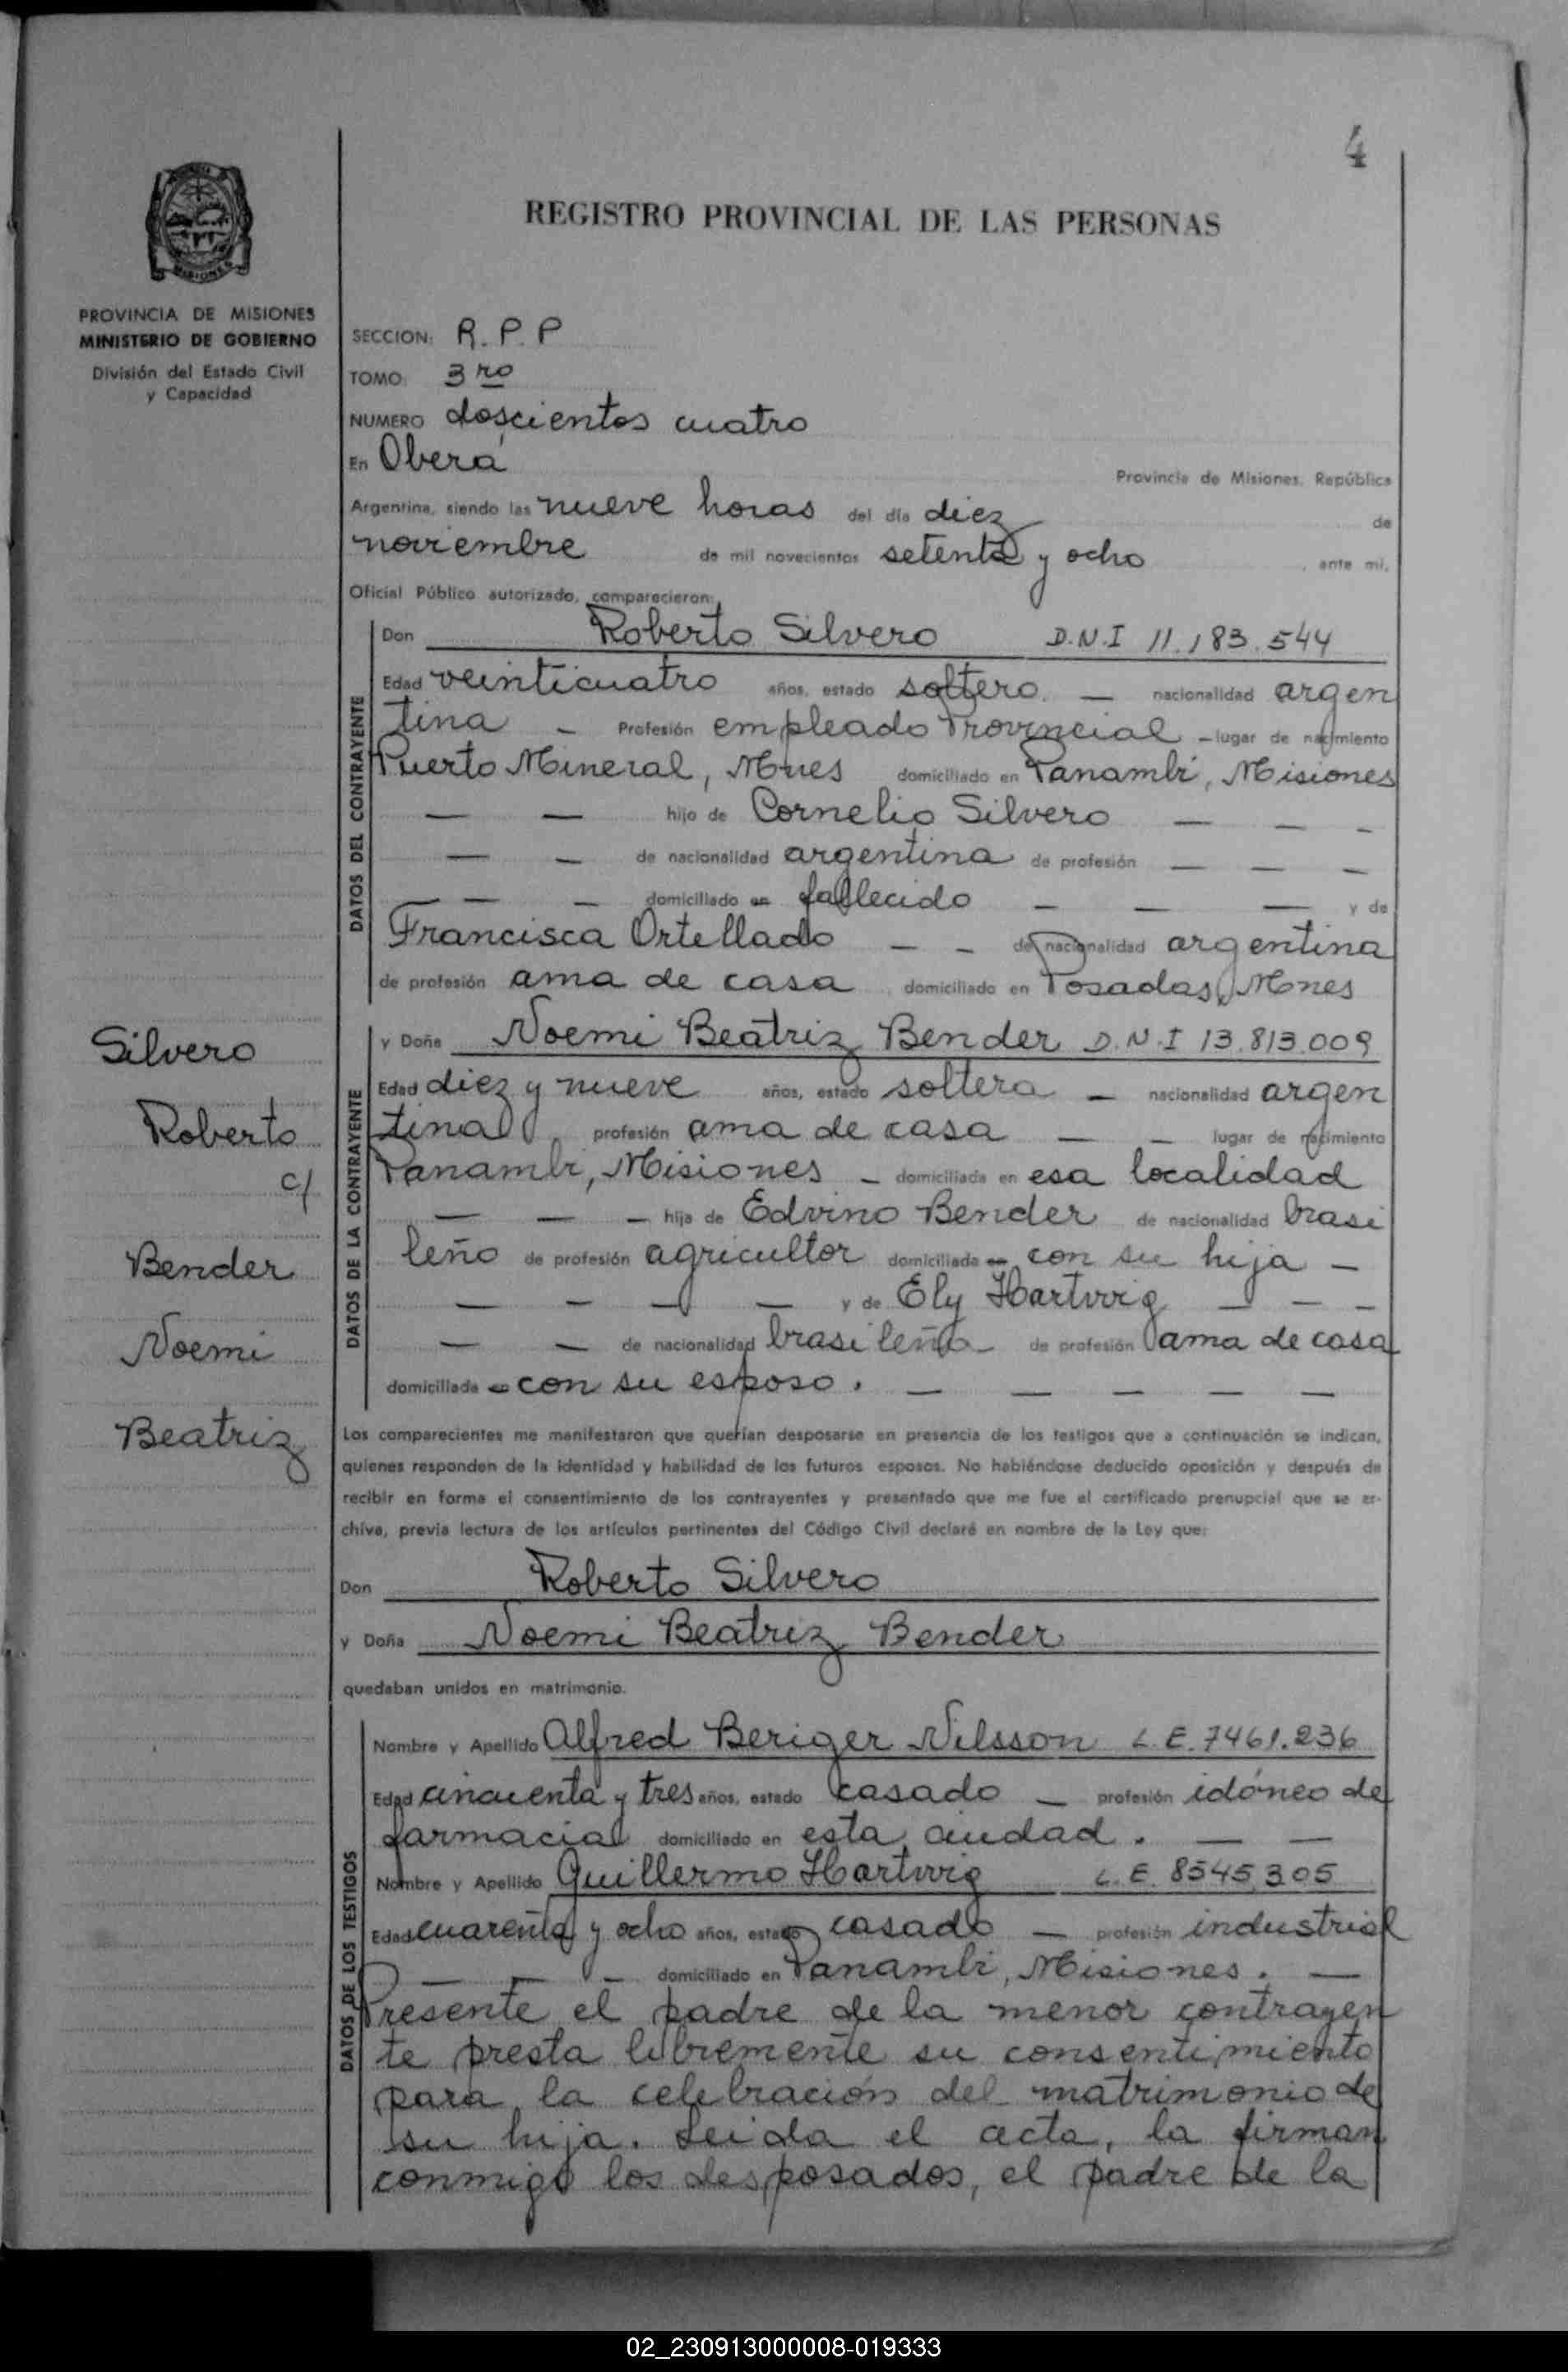 4
REGISTRO PROVINCIAL DE LAS PERSONAS
MISIONES
PROVINCIA DE MISIONES
MINISTERIO DE GOBIERNO
División del Estado Civil
y Capacidad
SECCION: R.P.P
TOMO: 3ro
NUMERO doscientos cuatro
En Oberá Provincia de Misiones, República
Argentina, siendo las nueve horas del día diez de
noviembre de mil novecientos setenta y ocho, ante mi,
Oficial Público autorizado, comparecieron:
DATOS DEL CONTRAYENTE
Don Roberto Silvero D.N.I 11.183.544
Edad veinticuatro años, estado soltero. — nacionalidad argen
tina — Profesión empleado Provincial - lugar de nacimiento
Puerto Mineral, Mnes domiciliado en Panambí, Misiones
— — hijo de Cornelio Silvero — — —
— — de nacionalidad argentina de profesión — — —
— — domiciliado en fallecido — — — y de
Francisca Ortellado — — de nacionalidad argentina
de profesión ama de casa domiciliado en Posadas, Mnes
Silvero
Roberto
c/
Bender
Noemi
Beatriz
DATOS DE LA CONTRAYENTE
y Doña Noemi Beatriz Bender D.N.I 13.813.009
Edad diez y nueve años, estado soltera — nacionalidad argen
tina profesión ama de casa — — lugar de nacimiento
Panambí, Misiones — domiciliada en esa localidad
— — — hija de Edvino Bender de nacionalidad brasi
leño de profesión agricultor domiciliado en con su hija —
— — — — y de Ely Hartwig — — —
— — de nacionalidad brasileña de profesión ama de casa
domiciliada en con su esposo. — — — — —
Los comparecientes me manifestaron que querían desposarse en presencia de los testigos que a continuación se indican,
quienes responden de la identidad y habilidad de los futuros esposos. No habiéndose deducido oposición y después de
recibir en forma el consentimiento de los contrayentes y presentado que me fue el certificado prenupcial que se ar-
chiva, previa lectura de los artículos pertinentes del Código Civil declaré en nombre de la Ley que:
Don Roberto Silvero
y Doña Noemi Beatriz Bender
quedaban unidos en matrimonio.
DATOS DE LOS TESTIGOS
Nombre y Apellido Alfred Beriger Nilsson L.E. 7461.236
Edad cincuenta y tres años, estado casado — profesión idóneo de
farmacia domiciliado en esta ciudad. — —
Nombre y Apellido Guillermo Hartwig L.E. 8545.305
Edad cuarenta y ocho años, estado casado — profesión industrial
— — — domiciliado en Panambí, Misiones. —
Presente el padre de la menor contrayen
te presta libremente su consentimiento
para la celebración del matrimonio de
su hija. Leida el acta, la firman
conmigo los desposados, el padre de la
02_230913000008-019333